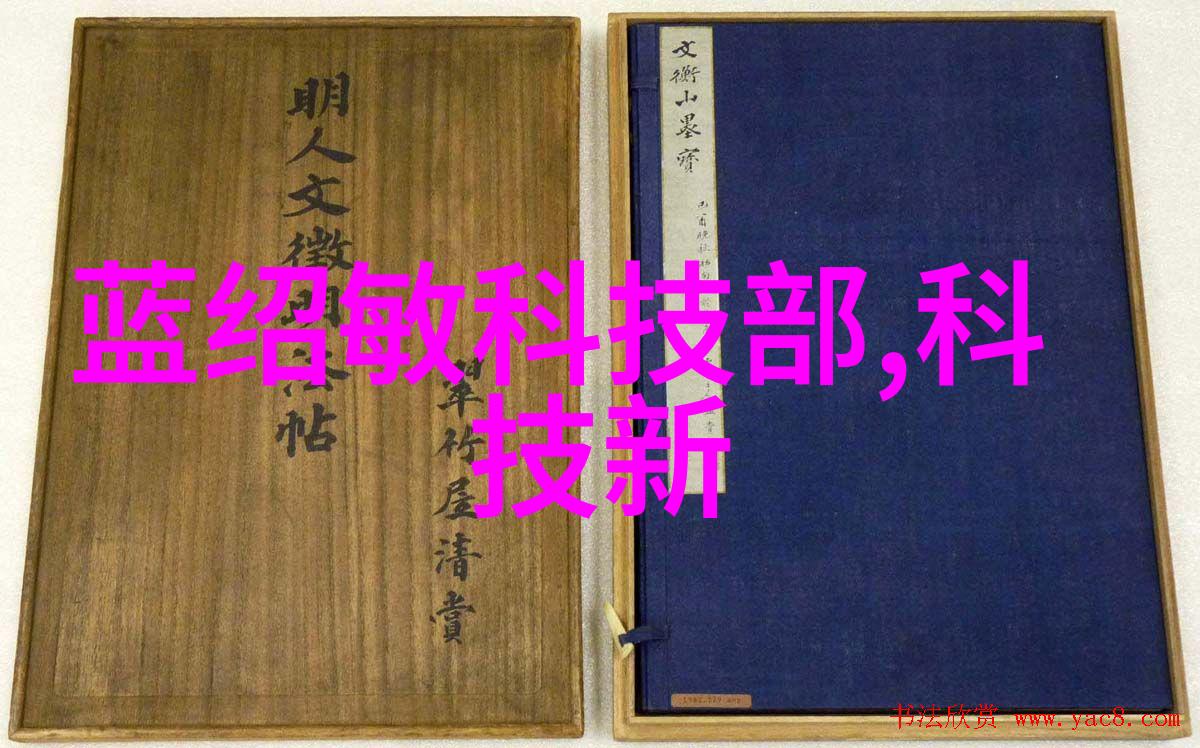 明人文徵明法帖
翠竹屋清赏
文衡山墨寶
蓝绍敏科技部,科
技新
书法欣赏 www.yac8.com